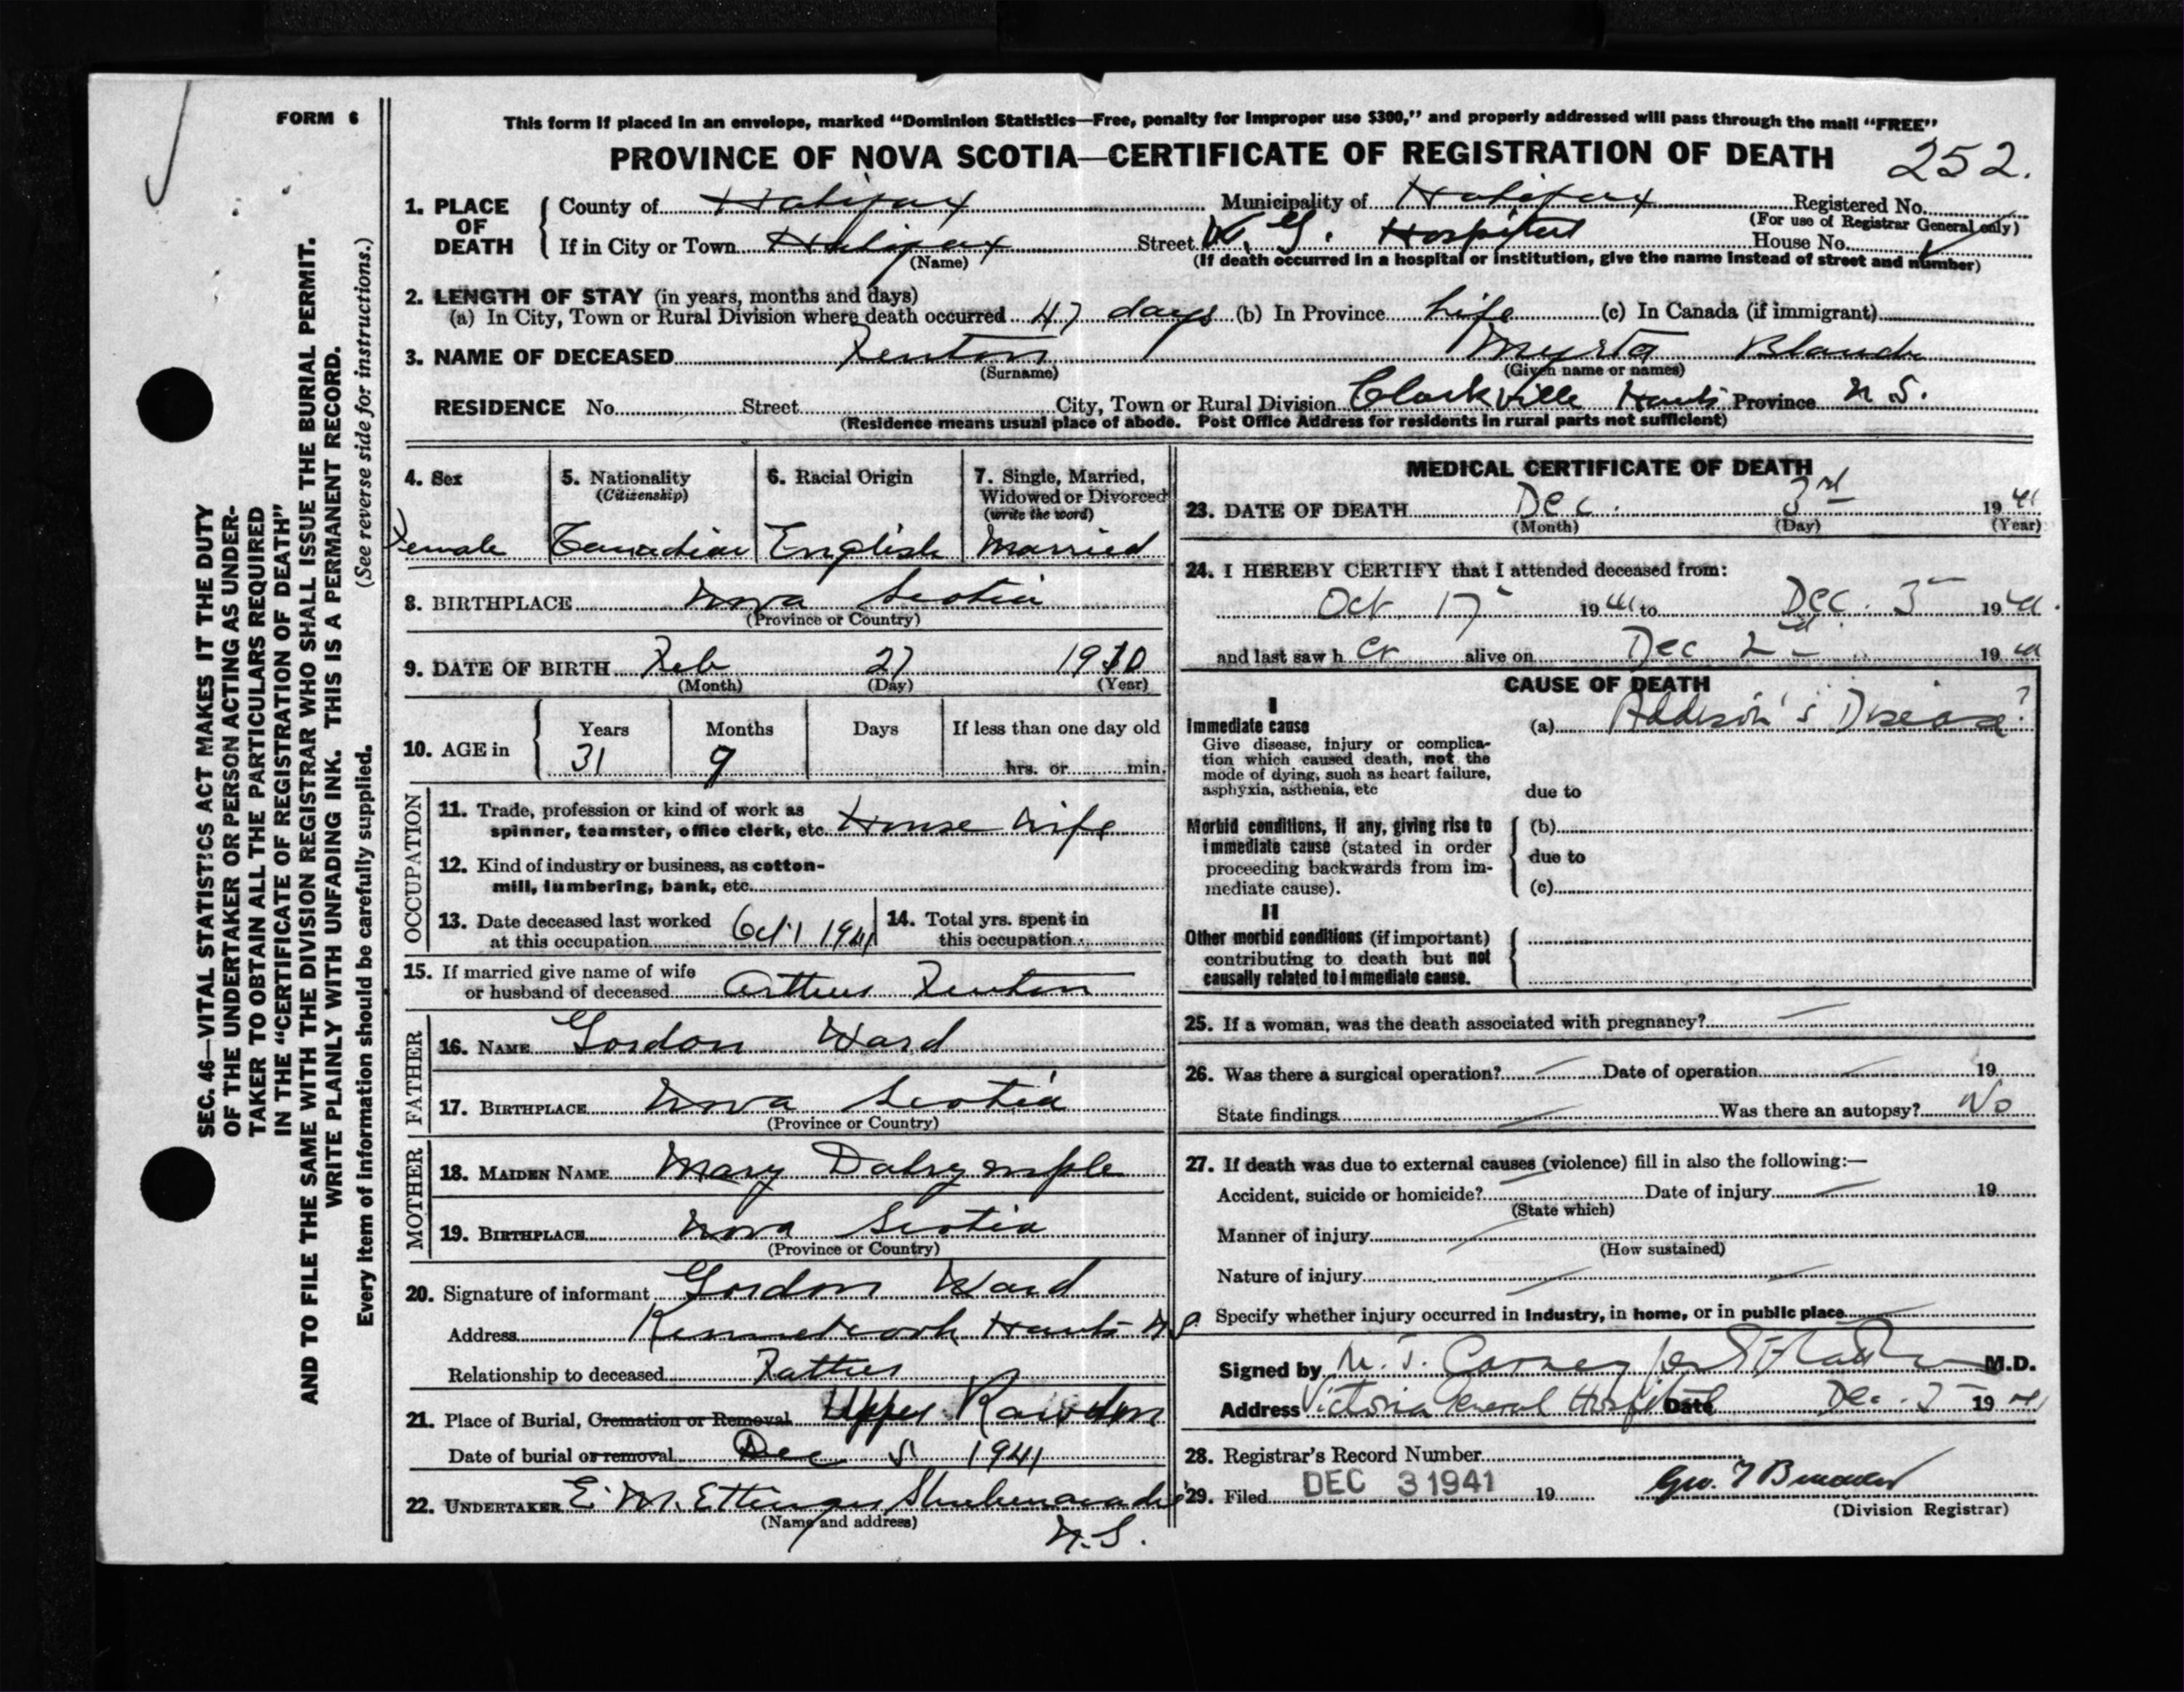 FORM 6
This form if placed in an envelope, marked “Dominion Statistics—Free, penalty for improper use $300,” and properly addressed will pass through the mail “FREE”
PROVINCE OF NOVA SCOTIA—CERTIFICATE OF REGISTRATION OF DEATH 252.
1. PLACE OF DEATH
County of Halifax Municipality of Halifax Registered No.
(For use of Registrar General only)
If in City or Town Halifax Street V. G. Hospital House No.
(Name) (If death occurred in a hospital or institution, give the name instead of street and number)
2. LENGTH OF STAY (in years, months and days)
(a) In City, Town or Rural Division where death occurred 47 days (b) In Province Life (c) In Canada (if immigrant)
3. NAME OF DECEASED Fenton Myrta Blanch
(Surname) (Given name or names)
RESIDENCE No. Street City, Town or Rural Division Clarkville Hants Province N. S.
(Residence means usual place of abode. Post Office Address for residents in rural parts not sufficient)
4. Sex
Female
5. Nationality
(Citizenship)
Canadian
6. Racial Origin
English
7. Single, Married,
Widowed or Divorced
(write the word)
Married
8. BIRTHPLACE Nova Scotia
(Province or Country)
9. DATE OF BIRTH Feb 27 1910
(Month) (Day) (Year)
10. AGE in
Years Months Days If less than one day old
31 9 hrs. or min.
OCCUPATION
11. Trade, profession or kind of work as
spinner, teamster, office clerk, etc. House wife
12. Kind of industry or business, as cotton-
mill, lumbering, bank, etc.
13. Date deceased last worked
at this occupation Oct 1 1941
14. Total yrs. spent in
this occupation
15. If married give name of wife
or husband of deceased Arthur Fenton
FATHER
16. NAME Gordon Ward
17. BIRTHPLACE Nova Scotia
(Province or Country)
MOTHER
18. MAIDEN NAME Mary Dalrymple
19. BIRTHPLACE Nova Scotia
(Province or Country)
20. Signature of informant Gordon Ward
Address Kennetcook Hants N S
Relationship to deceased Father
21. Place of Burial, Cremation or Removal Upper Rawdon
Date of burial or removal Dec 5 1941
22. UNDERTAKER E. M. Ettinger Shubenacadie
(Name and address)
N.S.
MEDICAL CERTIFICATE OF DEATH
23. DATE OF DEATH Dec. 3rd 1941
(Month) (Day) (Year)
24. I HEREBY CERTIFY that I attended deceased from:
Oct 17 1941 to Dec. 3 1941.
and last saw h er alive on Dec 2nd 1941
CAUSE OF DEATH
I
Immediate cause
Give disease, injury or complica-
tion which caused death, not the
mode of dying, such as heart failure,
asphyxia, asthenia, etc
(a) Addison's Disease?
due to
Morbid conditions, if any, giving rise to
immediate cause (stated in order
proceeding backwards from im-
mediate cause).
(b)
due to
(c)
II
Other morbid conditions (if important)
contributing to death but not
causally related to immediate cause.
25. If a woman, was the death associated with pregnancy? —
26. Was there a surgical operation? — Date of operation — 19
State findings — Was there an autopsy? No
27. If death was due to external causes (violence) fill in also the following:—
Accident, suicide or homicide? — Date of injury — 19
(State which)
Manner of injury —
(How sustained)
Nature of injury —
Specify whether injury occurred in industry, in home, or in public place —
Signed by M. T. Carney for M.D.
Address Victoria General Hospital Date Dec. 3 1941
28. Registrar's Record Number
29. Filed DEC 3 1941 19 Geo. F
(Division Registrar)
SEC. 46—VITAL STATISTICS ACT MAKES IT THE DUTY
OF THE UNDERTAKER OR PERSON ACTING AS UNDER-
TAKER TO OBTAIN ALL THE PARTICULARS REQUIRED
IN THE “CERTIFICATE OF REGISTRATION OF DEATH”
AND TO FILE THE SAME WITH THE DIVISION REGISTRAR WHO SHALL ISSUE THE BURIAL PERMIT.
WRITE PLAINLY WITH UNFADING INK. THIS IS A PERMANENT RECORD.
Every item of information should be carefully supplied. (See reverse side for instructions.)